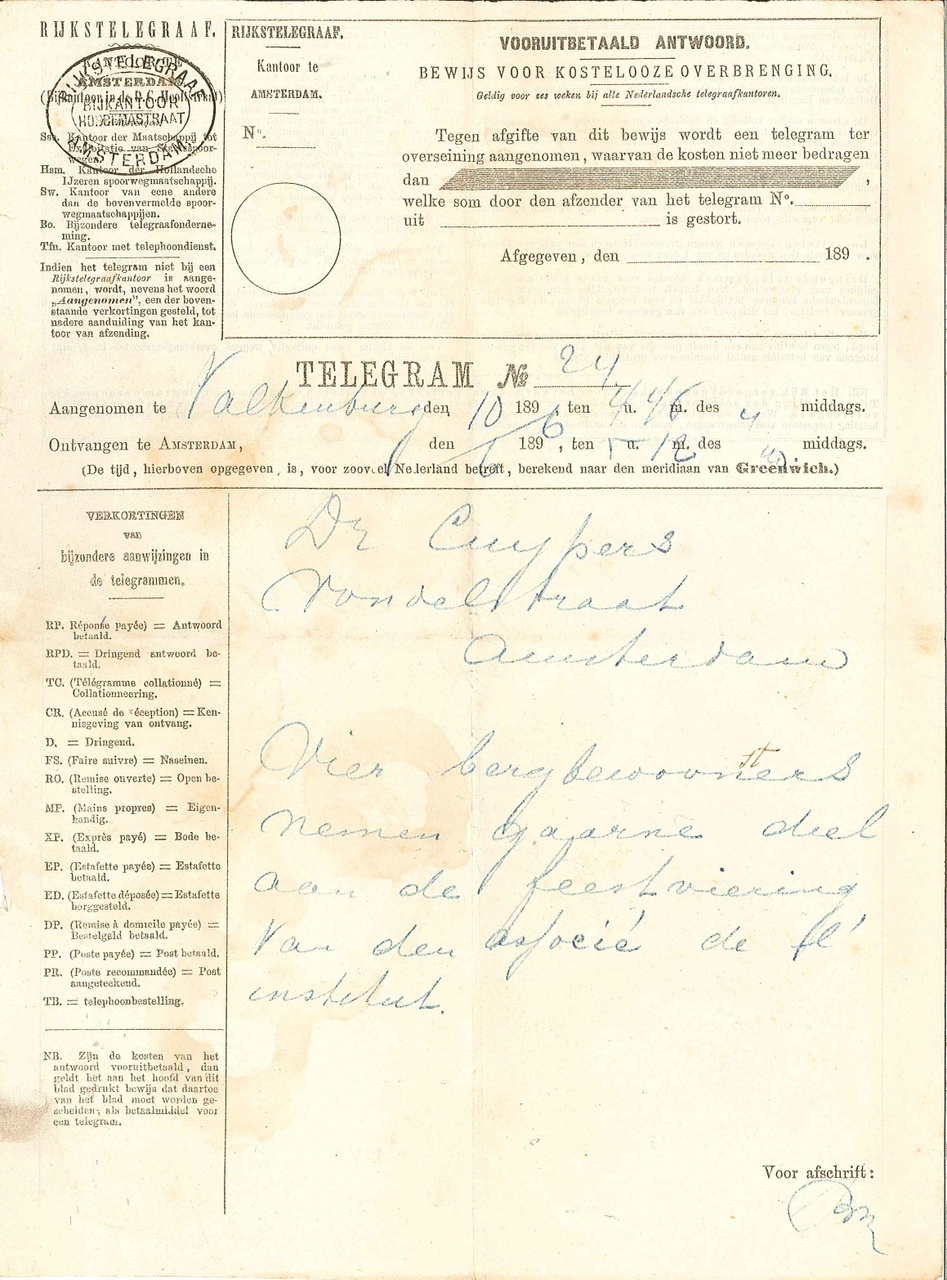 RIJKSTELEGRAAF.
RIJKSTELEGRAAF
BIJKANTOOR
HOBBEMASTRAAT
AMSTERDAM
AMSTERDAM
Kantoor der Maatschappij tot
Exploitatie van Staatsspoor-
wegen.
Hsm. Kantoor der Hollandsche
IJzeren spoorwegmaatschappij.
Sw. Kantoor van eene andere
dan de bovenvermelde spoor-
wegmaatschappijen.
Bo. Bijzondere telegraafonderne-
ming.
Tfn. Kantoor met telephoondienst.
Indien het telegram niet bij een
Rijkstelegraafkantoor is aange-
nomen, wordt, nevens het woord
„Aangenomen", een der boven-
staande verkortingen gesteld, tot
nadere aanduiding van het kan-
toor van afzending.
RIJKSTELEGRAAF.
Kantoor te
AMSTERDAM.
No.
VOORUITBETAALD ANTWOORD.
BEWIJS VOOR KOSTELOOZE OVERBRENGING.
Geldig voor zes weken bij alle Nederlandsche telegraafkantoren.
Tegen afgifte van dit bewijs wordt een telegram ter
overseining aangenomen, waarvan de kosten niet meer bedragen
dan ,
welke som door den afzender van het telegram No.
uit is gestort.
Afgegeven, den 189 .
TELEGRAM No 24
Aangenomen te Valkenburg den 10 1896 ten 4 u. 46 m. des n middags.
Ontvangen te AMSTERDAM, den 189 , ten 5 u. 12 m. des n middags.
(De tijd, hierboven opgegeven, is, voor zooveel Nederland betreft, berekend naar den meridiaan van Greenwich.)
VERKORTINGEN
van
bijzondere aanwijzingen in
de telegrammen.
RP. Réponse payée) = Antwoord
betaald.
RPD. = Dringend antwoord be-
taald.
TC. (Télégramme collationné) =
Collationneering.
CR. (Accusé de réception) = Ken-
nisgeving van ontvang.
D. = Dringend.
FS. (Faire suivre) = Naseinen.
RO. (Remise ouverte) = Open be-
stelling.
MP. (Mains propres) = Eigen-
handig.
XP. (Exprès payé) = Bode be-
taald.
EP. (Estafette payée) = Estafette
betaald.
ED. (Estafette déposée) = Estafette
borggesteld.
DP. (Remise à domicile payée) =
Bestelgeld betaald.
PP. (Poste payée) = Post betaald.
PR. (Poste recommandée) = Post
aangeteekend.
TB. = telephoonbestelling.
NB. Zijn de kosten van het
antwoord vooruitbetaald, dan
geldt het aan het hoofd van dit
blad gedrukt bewijs dat daartoe
van het blad moet worden ge-
scheiden, als betaalmiddel voor
een telegram.
Dr Cuypers
Vondelstraat
Amsterdam
Vier bergbewoonsters
nemen gaarne deel
aan de feestviering
van den associé de l'
institut.
Voor afschrift: